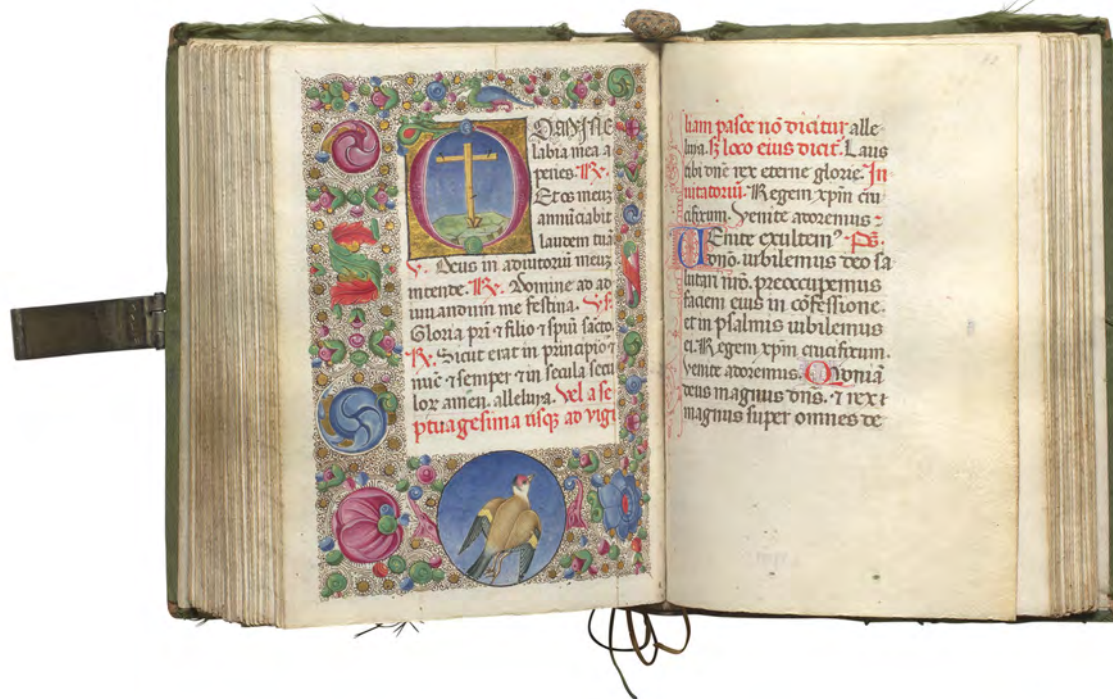 DOMINE
labia mea a
peries. ℟.
Et os meuz
annūciabit
laudem tuā
℣. Deus in adiutoriū meuz
intende. ℟. Domine ad ad
iuuandum me festina. ℣s.
Gloria pri̅ ⁊ filio ⁊ spiu̅ sācto.
℟. Sicut erat in principio ⁊
nu̅c ⁊ semper ⁊ in secula secu
loꝝ amen. alleluya. Vel a se
ptuagesima usqꝫ ad vigi
liam pasce nō dicitur alle
luya. sꝫ loco eius dicit̅. Laus
tibi dn̅e rex eterne glorie. In
uitatoriū. Regem xpm̅ cru
cifixum. Venite adoremus.
Uenite exultemꝰ Ps̅.
dn̅o. iubilemus deo sa
lutari nr̅o. preoccupemus
faciem eius in cōfessione.
et in psalmis iubilemus
ei. Regem xpm̅ crucifixum.
venite adoremus. Qvoniā
deus magnus dn̅s. ⁊ rex
magnus super omnes de